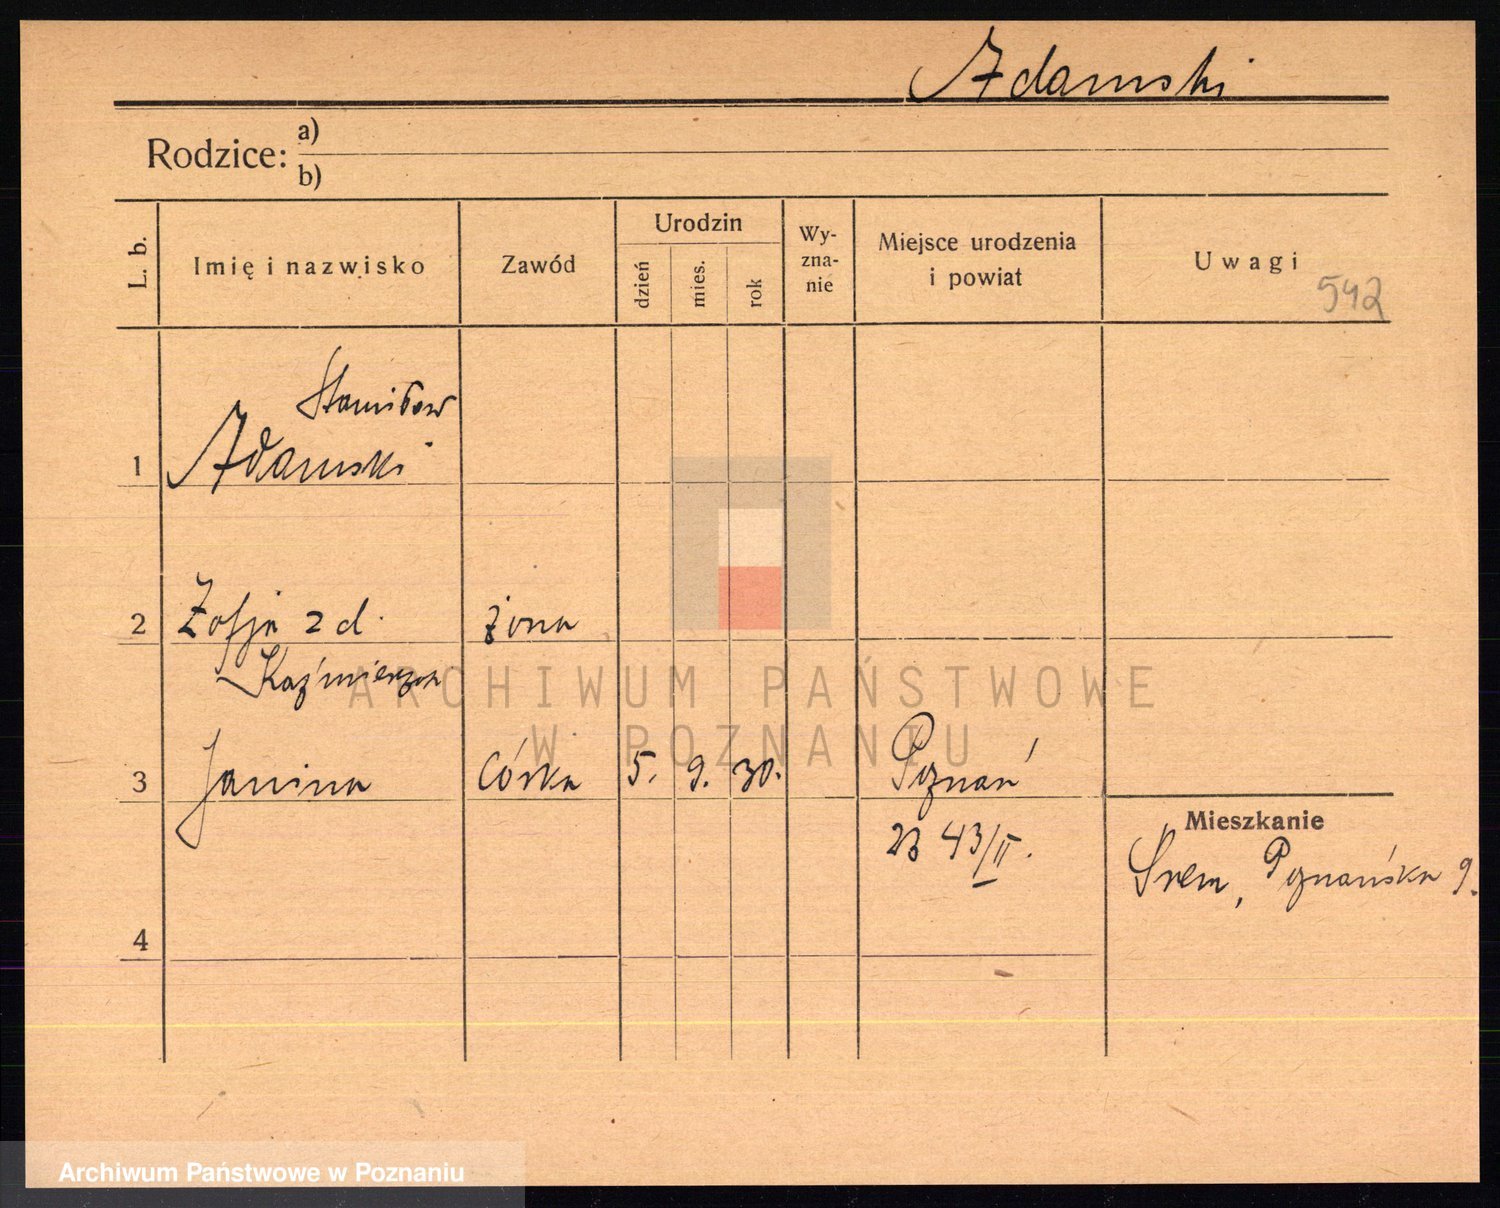 Adamski
Rodzice: a)
b)
L. b.
Imię i nazwisko
Zawód
Urodzin
dzień
mies.
rok
Wy-
zna-
nie
Miejsce urodzenia
i powiat
Uwagi
542
Stanisław
1 Adamski
2 Zofja z d. żona
Kaźmierczak
3 Janina córka 5. 9. 30. Poznań
Mieszkanie
23 43/II.
Śrem, Poznańska 9.
4
ARCHIWUM PAŃSTWOWE
W POZNANIU
Archiwum Państwowe w Poznaniu